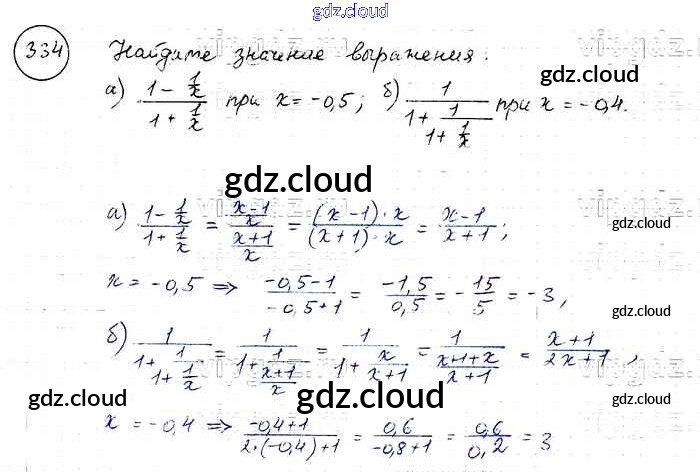 gdz.cloud
334 Найдите значение выражения:
а) (1 - 1/x)/(1 + 1/x) при x = -0,5; б) 1/(1 + 1/(1 + 1/x)) при x = -0,4.
gdz.cloud
gdz.cloud
gdz.cloud
а) (1 - 1/x)/(1 + 1/x) = ((x-1)/x)/((x+1)/x) = ((x-1)·x)/((x+1)·x) = (x-1)/(x+1);
gdz.cloud
x = -0,5 ⇒ (-0,5-1)/(-0,5+1) = (-1,5)/(0,5) = -15/5 = -3,
gdz.cloud
б) 1/(1 + 1/(1 + 1/x)) = 1/(1 + 1/((x+1)/x)) = 1/(1 + x/(x+1)) = 1/((x+1+x)/(x+1)) = (x+1)/(2x+1),
gdz.cloud
gdz.cloud
gdz.cloud
x = -0,4 ⇒ (-0,4+1)/(2·(-0,4)+1) = 0,6/(-0,8+1) = 0,6/0,2 = 3